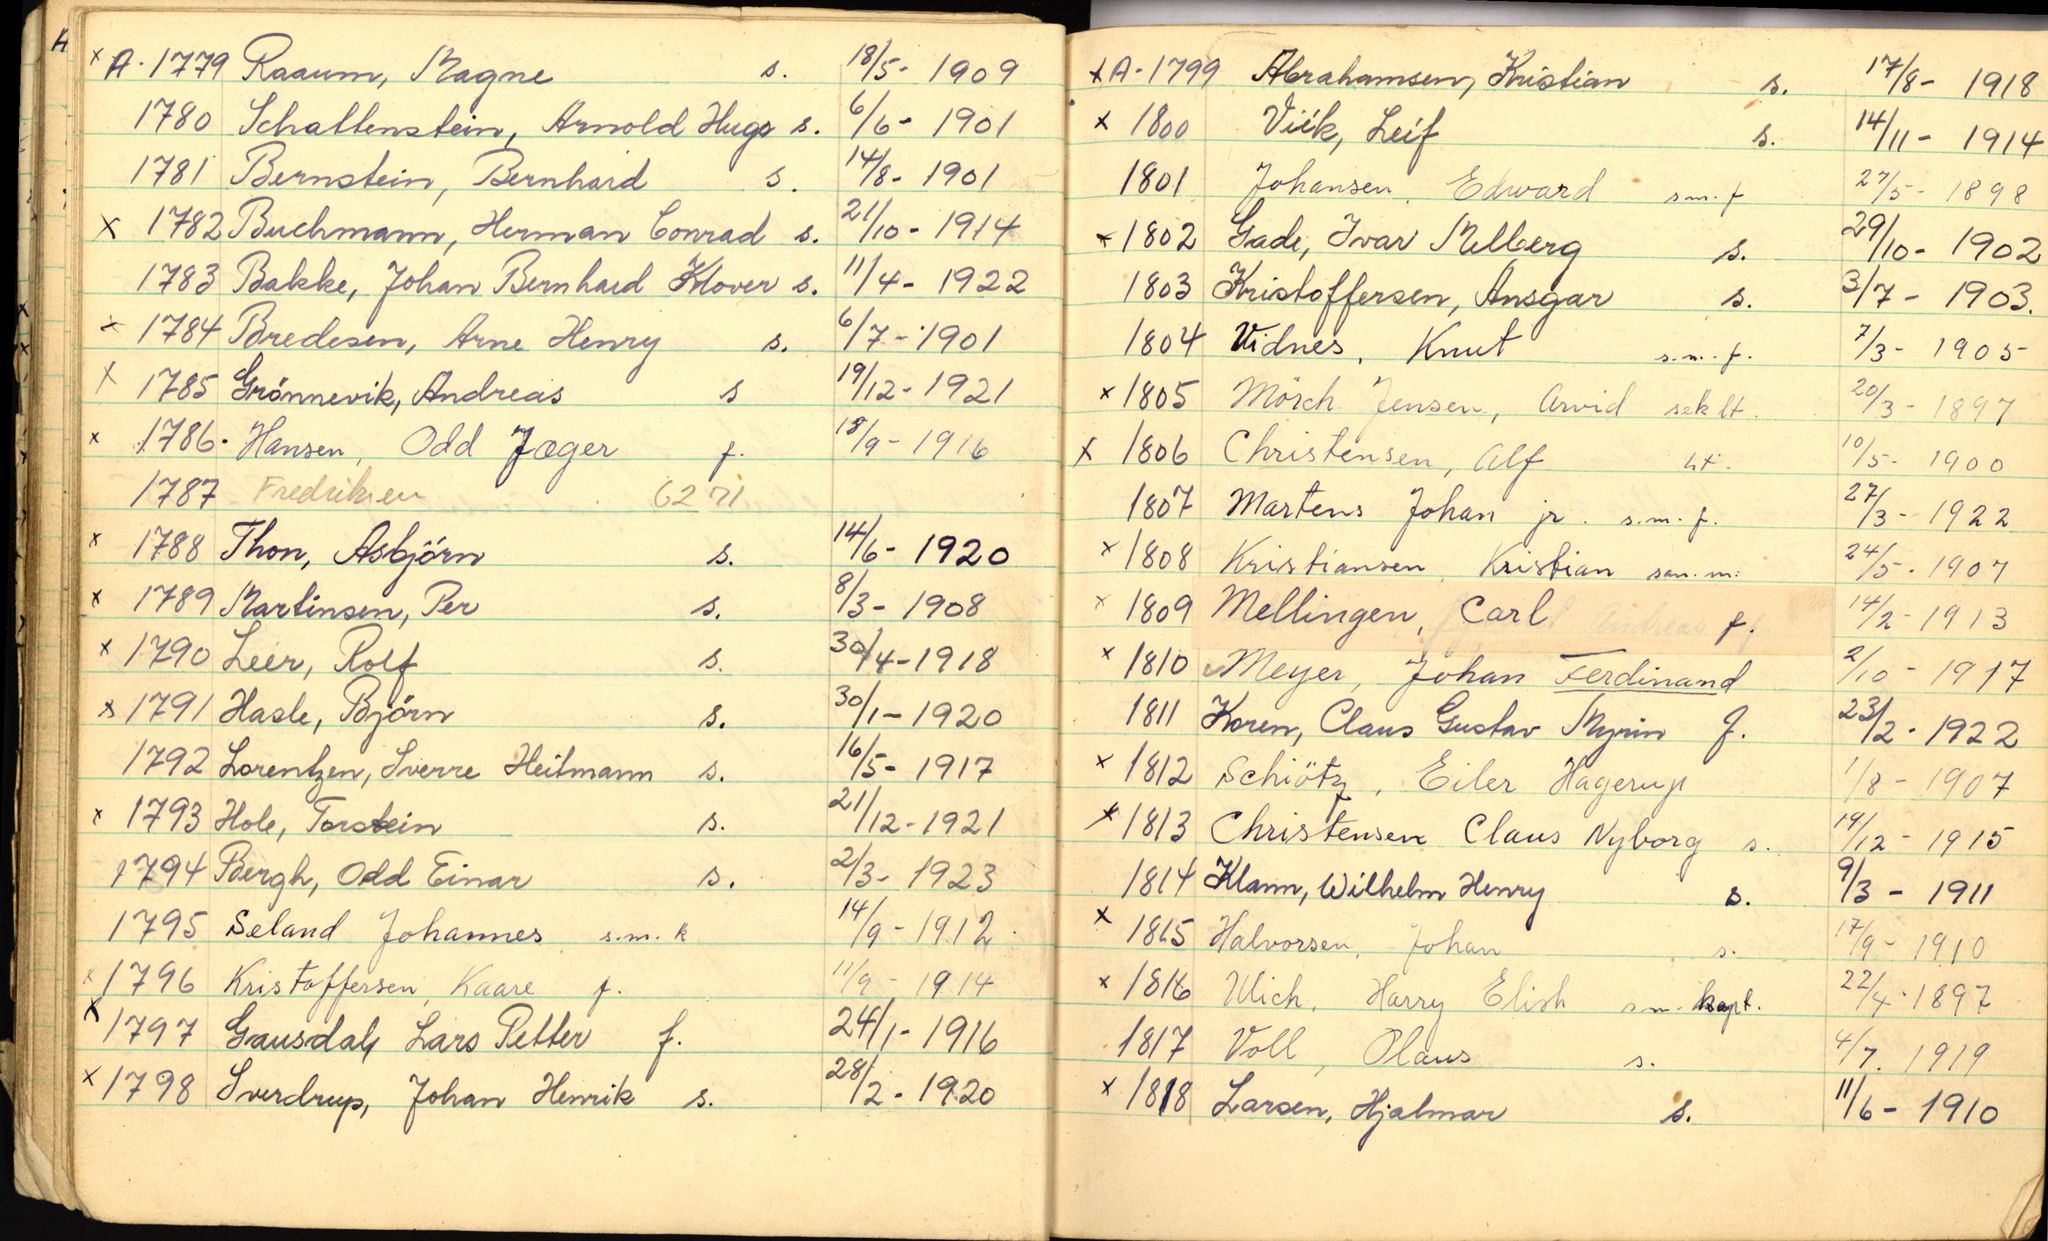 x A. 1779 Raaum, Magne s. 18/5 - 1909
1780 Schallenstein, Arnold Hugo s. 6/6 - 1901
1781 Bernstein, Bernhard s. 14/8 - 1901
x 1782 Buchmann, Herman Conrad s. 21/10 - 1914
1783 Bakke, Johan Bernhard Klover s. 11/4 - 1922
x 1784 Bredesen, Arne Henry s. 6/7 - 1901
x 1785 Grönnevik, Andreas s 19/12 - 1921
x 1786. Hansen, Odd Jæger f. 18/9 - 1916
1787 Fredriksen 6271
x 1788 Thon, Asbjörn s. 14/6 - 1920
x 1789 Martinsen, Per s. 8/3 - 1908
x 1790 Leer, Rolf s. 30/4 - 1918
x 1791 Hasle, Björn s. 30/1 - 1920
1792 Lorentzen, Sverre Heitmann s. 16/5 - 1917
x 1793 Hole, Torstein s. 21/12 - 1921
1794 Bergh, Odd Einar s. 2/3 - 1923
1795 Seland Johannes s.m. k 14/9 - 1912
x 1796 Kristoffersen, Kaare f. 11/9 - 1914
x 1797 Gausdal, Lars Petter f. 24/1 - 1916
x 1798 Sverdrup, Johan Henrik s. 28/2 - 1920
x A - 1799 Abrahamsen, Kristian s. 17/8 - 1918
x 1800 Viik, Leif s. 14/11 - 1914
1801 Johansen, Edward s.m. f 27/5 - 1898
x 1802 Gade, Ivar Melberg s. 29/10 - 1902
1803 Kristoffersen, Ansgar s. 3/7 - 1903.
1804 Vidnes, Knut s.m. f. 7/3 - 1905
x 1805 Mörch Jensen, Arvid sek lt. 20/3 - 1897
x 1806 Christensen, Alf lt. 10/5 - 1900
1807 Martens Johan jr. s.m. f. 27/3 - 1922
x 1808 Kristiansen, Kristian san. m. 24/5 - 1907
x 1809 Mellingen, Carl f. 14/2 - 1913
x 1810 Meyer, Johan Ferdinand 2/10 - 1917
1811 Koren, Claus Gustav Myrin f. 23/2 - 1922
x 1812 Schiötz, Eiler Hagerup 1/8 - 1907
x 1813 Christensen Claus Nyborg s. 19/12 - 1915
1814 Klann, Wilhelm Henry s. 9/3 - 1911
x 1815 Halvorsen, Johan s. 17/9 - 1910
x 1816 Ulich, Harry Elish s.m. kapt. 22/4 - 1897
1817 Voll, Olaus s. 4/7. 1919
x 1818 Larsen, Hjalmar s. 11/6 - 1910